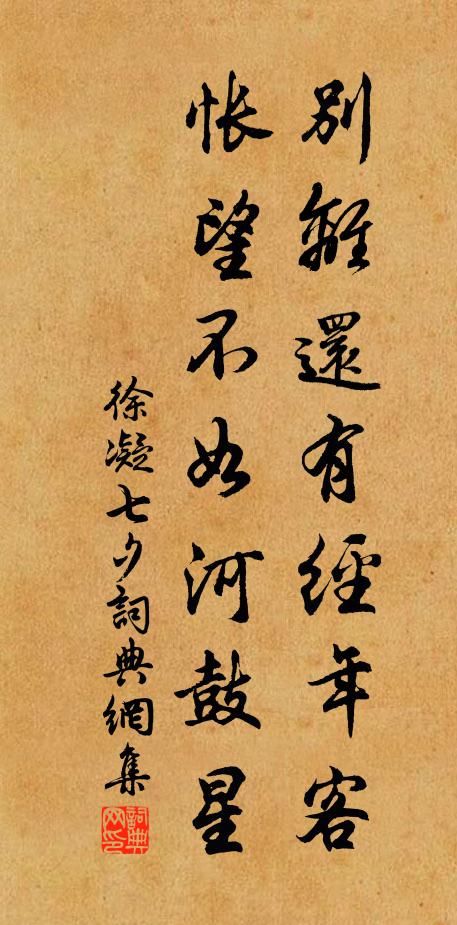 別離還有經年客
悵望不如河鼓星
徐凝七夕詞典網集
詞典网印